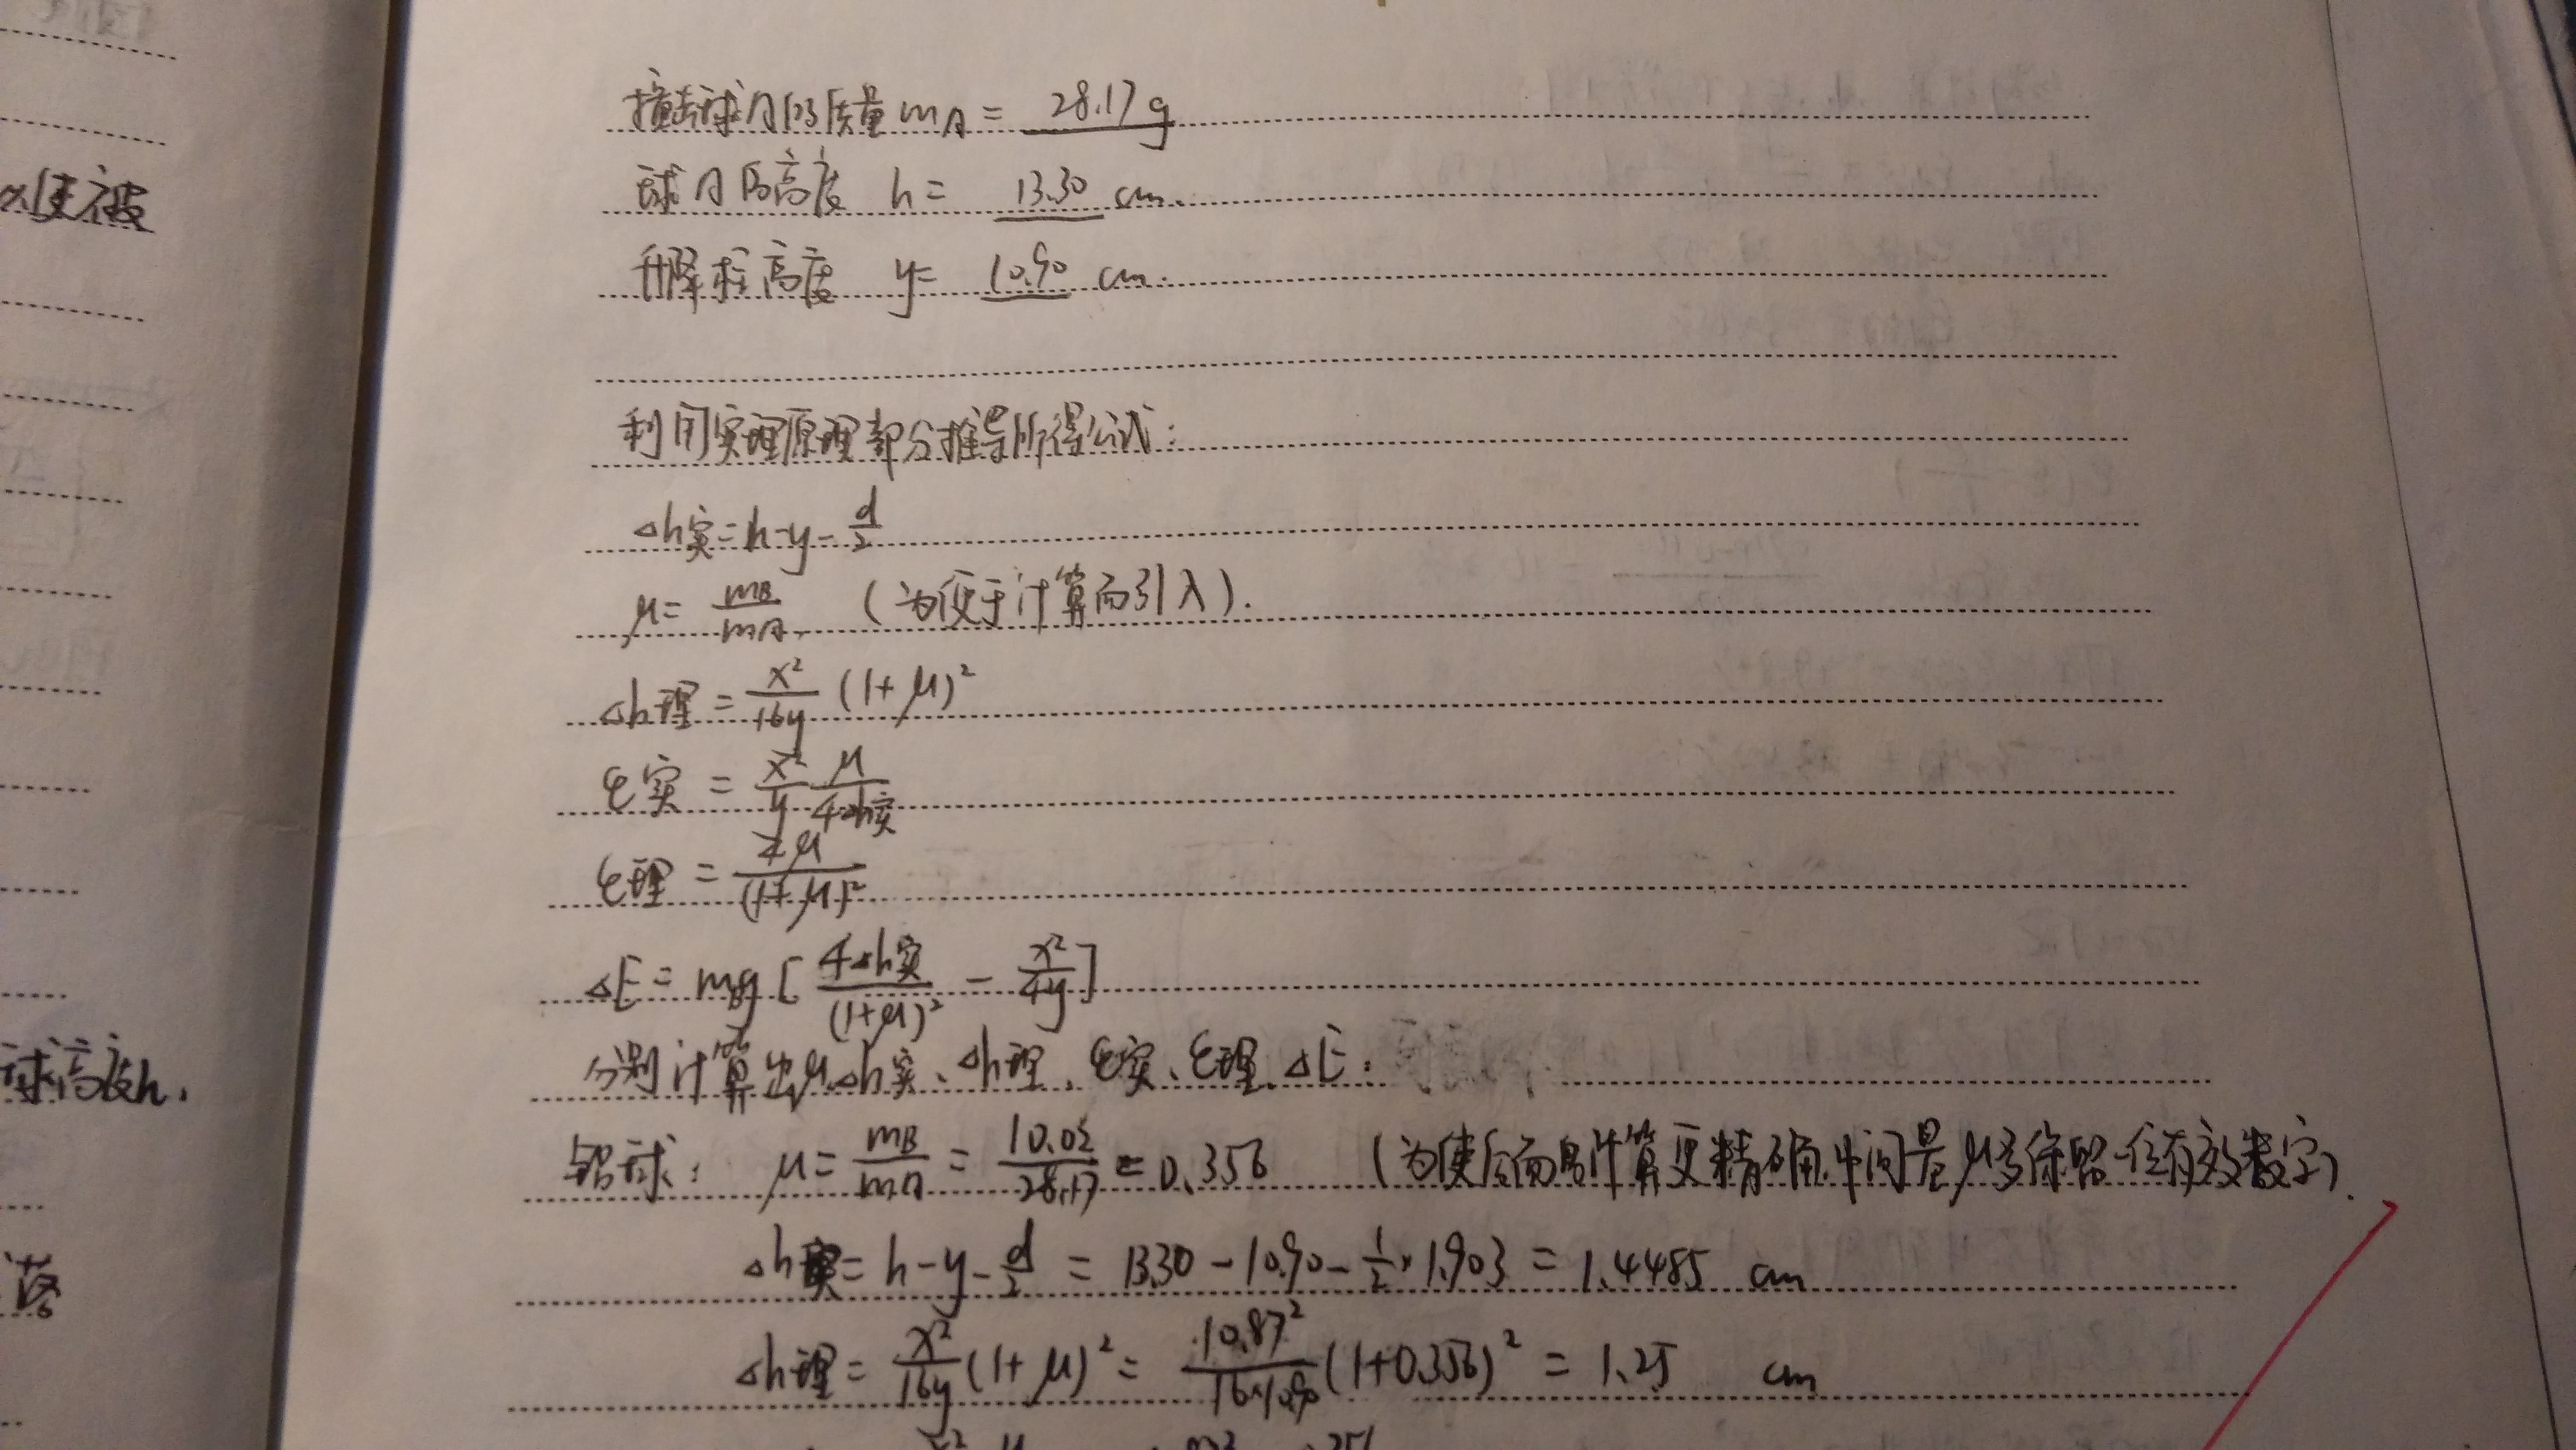 以使被
球高度h.
落
撞击球A的质量 mA = 28.17 g
球A的高度 h = 13.30 cm.
升降柱高度 y = 10.90 cm.
利用实验原理部分推导所得公式:
△h实 = h-y-d/2
μ = mB/mA (为便于计算而引入).
△h理 = x²/16y (1+μ)²
ε实 = x²/y μ/4△h实
ε理 = 4μ/(1+μ)²
△E = mBg [4△h实/(1+μ)² - x²/4y]
分别计算出μ、△h实、△h理、ε实、ε理、△E:
铝球: μ = mB/mA = 10.02/28.17 = 0.356 (为使后面的计算更精确,中间量μ多保留一位有效数字).
△h实 = h-y-d/2 = 13.30-10.90-1/2×1.903 = 1.4485 cm
△h理 = x²/16y (1+μ)² = 10.87²/16×10.90 (1+0.356)² = 1.25 cm